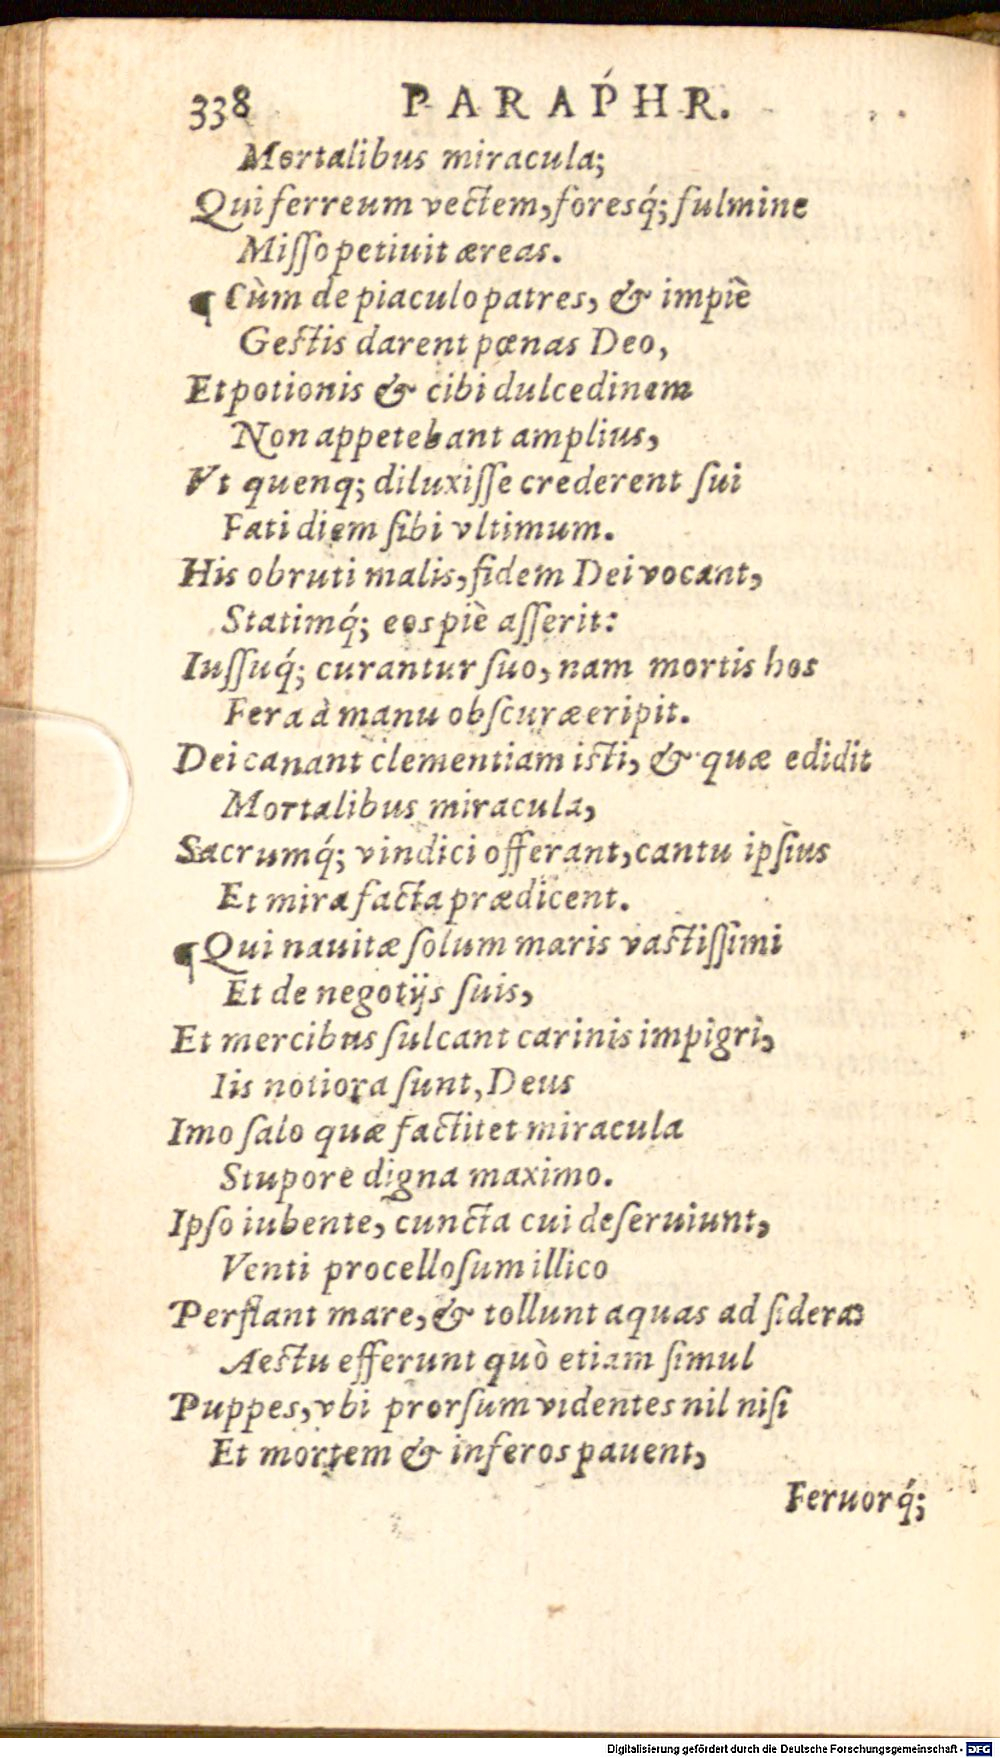 338 PARAPHR.
Mortalibus miracula;
Qui ferreum vectem, foresq́; fulmine
Miſſo petiuit æreas.
¶ Cùm de piaculo patres, & impiè
Geſtis darent pœnas Deo,
Et potionis & cibi dulcedinem
Non appetebant amplius,
Vt quenq; diluxiſſe crederent ſui
Fati diem ſibi vltimum.
His obruti malis, fidem Dei vocant,
Statimq́; eos piè aſſerit:
Iuſſuq́; curantur ſuo, nam mortis hos
Fera à manu obſcuræ eripit.
Dei canant clementiam iſti, & quæ edidit
Mortalibus miracula,
Sacrumq́; vindici offerant, cantu ipſius
Et mira facta prædicent.
¶ Qui nauitæ ſolum maris vaſtiſſimi
Et de negotijs ſuis,
Et mercibus ſulcant carinis impigri,
Iis notiora ſunt, Deus
Imo ſalo quæ factitet miracula
Stupore digna maximo.
Ipſo iubente, cuncta cui deſeruiunt,
Venti procelloſum illico
Perflant mare, & tollunt aquas ad ſidera:
Aeſtu efferunt quò etiam ſimul
Puppes, vbi prorſum videntes nil niſi
Et mortem & inferos pauent,
Feruorq́;
Digitalisierung gefördert durch die Deutsche Forschungsgemeinschaft - DFG